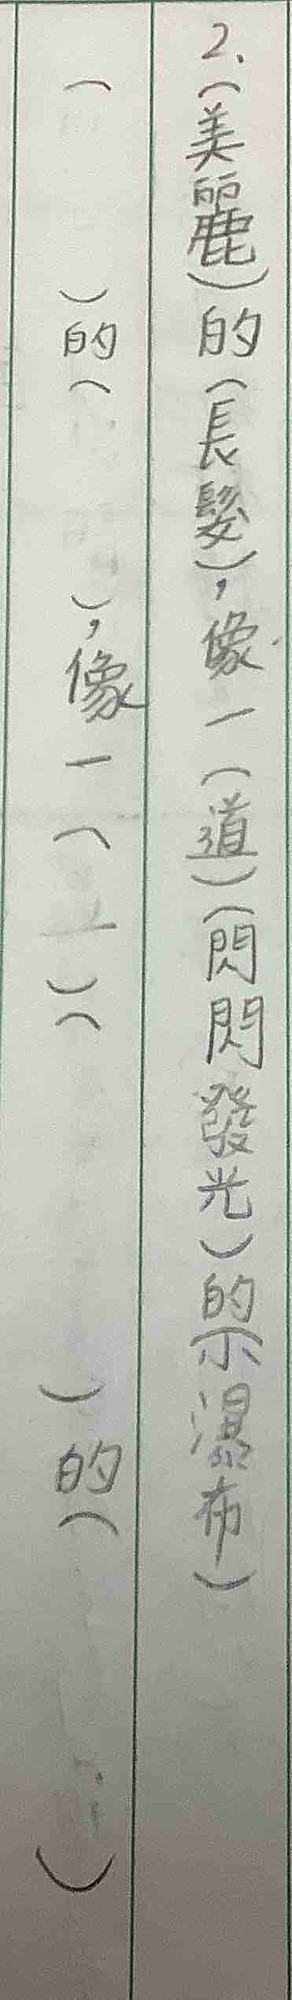 2、(美麗)的(長髮)，像一(道)(閃閃發光)的(小瀑布)
(　　)的(　　)，像一(　)(　　　　)的(　　　)